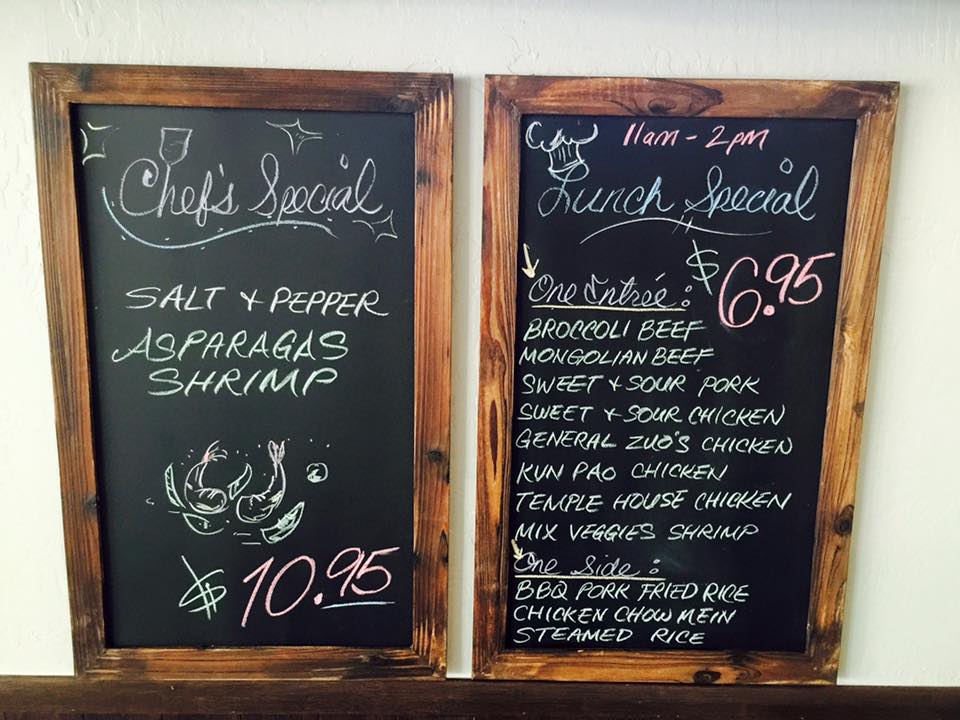 Chef's Special
SALT & PEPPER
ASPARAGAS
SHRIMP
$10.95
11am - 2pm
Lunch Special
$6.95
One Entrée:
BROCCOLI BEEF
MONGOLIAN BEEF
SWEET & SOUR PORK
SWEET & SOUR CHICKEN
GENERAL ZUO'S CHICKEN
KUN PAO CHICKEN
TEMPLE HOUSE CHICKEN
MIX VEGGIES SHRIMP
One Side:
BBQ PORK FRIED RICE
CHICKEN CHOW MEIN
STEAMED RICE